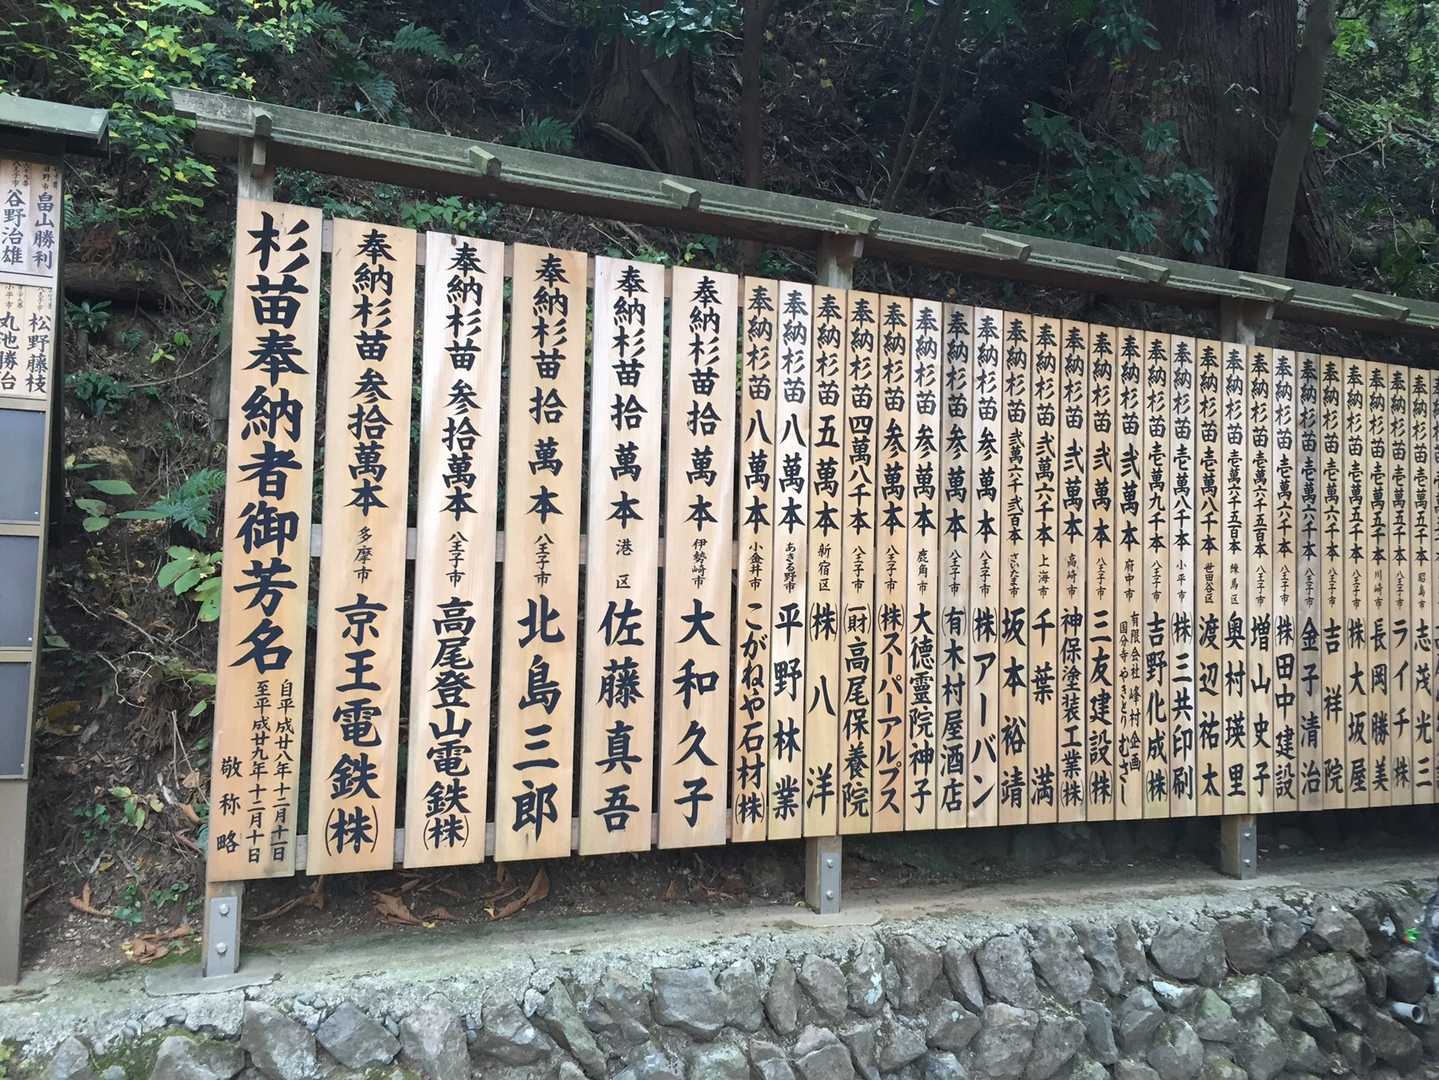 杉苗奉納者御芳名 自平成廿八年十二月十一日 至平成廿九年十二月十日 敬称略
奉納杉苗参拾萬本 多摩市 京王電鉄(株)
奉納杉苗参拾萬本 八王子市 高尾登山電鉄(株)
奉納杉苗拾萬本 八王子市 北島三郎
奉納杉苗拾萬本 港区 佐藤真吾
奉納杉苗拾萬本 伊勢崎市 大和久子
奉納杉苗八萬本 小金井市 こがねや石材(株)
奉納杉苗八萬本 あきる野市 平野林業
奉納杉苗五萬本 新宿区 (株)八洋
奉納杉苗四萬八千本 八王子市 (財)高尾保養院
奉納杉苗参萬本 八王子市 (株)スーパーアルプス
奉納杉苗参萬本 鹿角市 大徳霊院神子
奉納杉苗参萬本 八王子市 (有)木村屋酒店
奉納杉苗参萬本 八王子市 (株)アーバン
奉納杉苗弐萬六千弐百本 さいたま市 坂本裕靖
奉納杉苗弐萬六千本 上海市 千葉満
奉納杉苗弐萬本 高崎市 神保塗装工業(株)
奉納杉苗弐萬本 八王子市 三友建設(株)
奉納杉苗弐萬本 府中市 有限会社峰村企画 国分寺やきとりむさし
奉納杉苗壱萬九千本 八王子市 吉野化成(株)
奉納杉苗壱萬八千本 小平市 (株)三共印刷
奉納杉苗壱萬八千本 世田谷区 渡辺祐太
奉納杉苗壱萬六千五百本 練馬区 奥村瑛里
奉納杉苗壱萬六千五百本 八王子市 増山史子
奉納杉苗壱萬六千本 八王子市 (株)田中建設
奉納杉苗壱萬六千本 八王子市 金子清治
奉納杉苗壱萬六千本 八王子市 吉祥院
奉納杉苗壱萬五千本 八王子市 (株)大坂屋
奉納杉苗壱萬五千本 川崎市 長岡勝美
奉納杉苗壱萬五千本 八王子市 ライチ(株)
奉納杉苗壱萬五千本 昭島市 志茂光三
畠山勝利
八王子市 谷野治雄
松野藤枝
小平市 丸池勝台